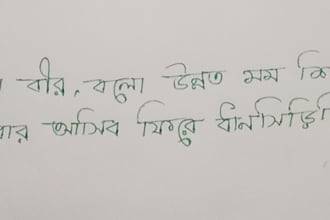 বীর, বলো উন্নত মম শি
ার আসিব ফিরে ধানসিড়ি